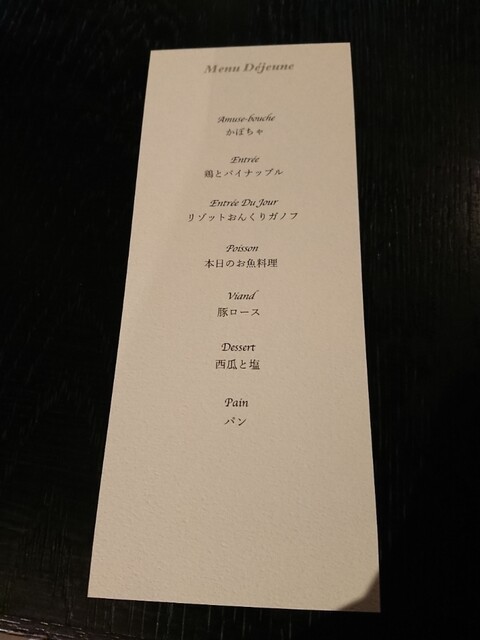 Menu Déjeune
Amuse-bouche
かぼちゃ
Entrée
鶏とパイナップル
Entrée Du Jour
リゾットおんくりガノフ
Poisson
本日のお魚料理
Viand
豚ロース
Dessert
西瓜と塩
Pain
パン